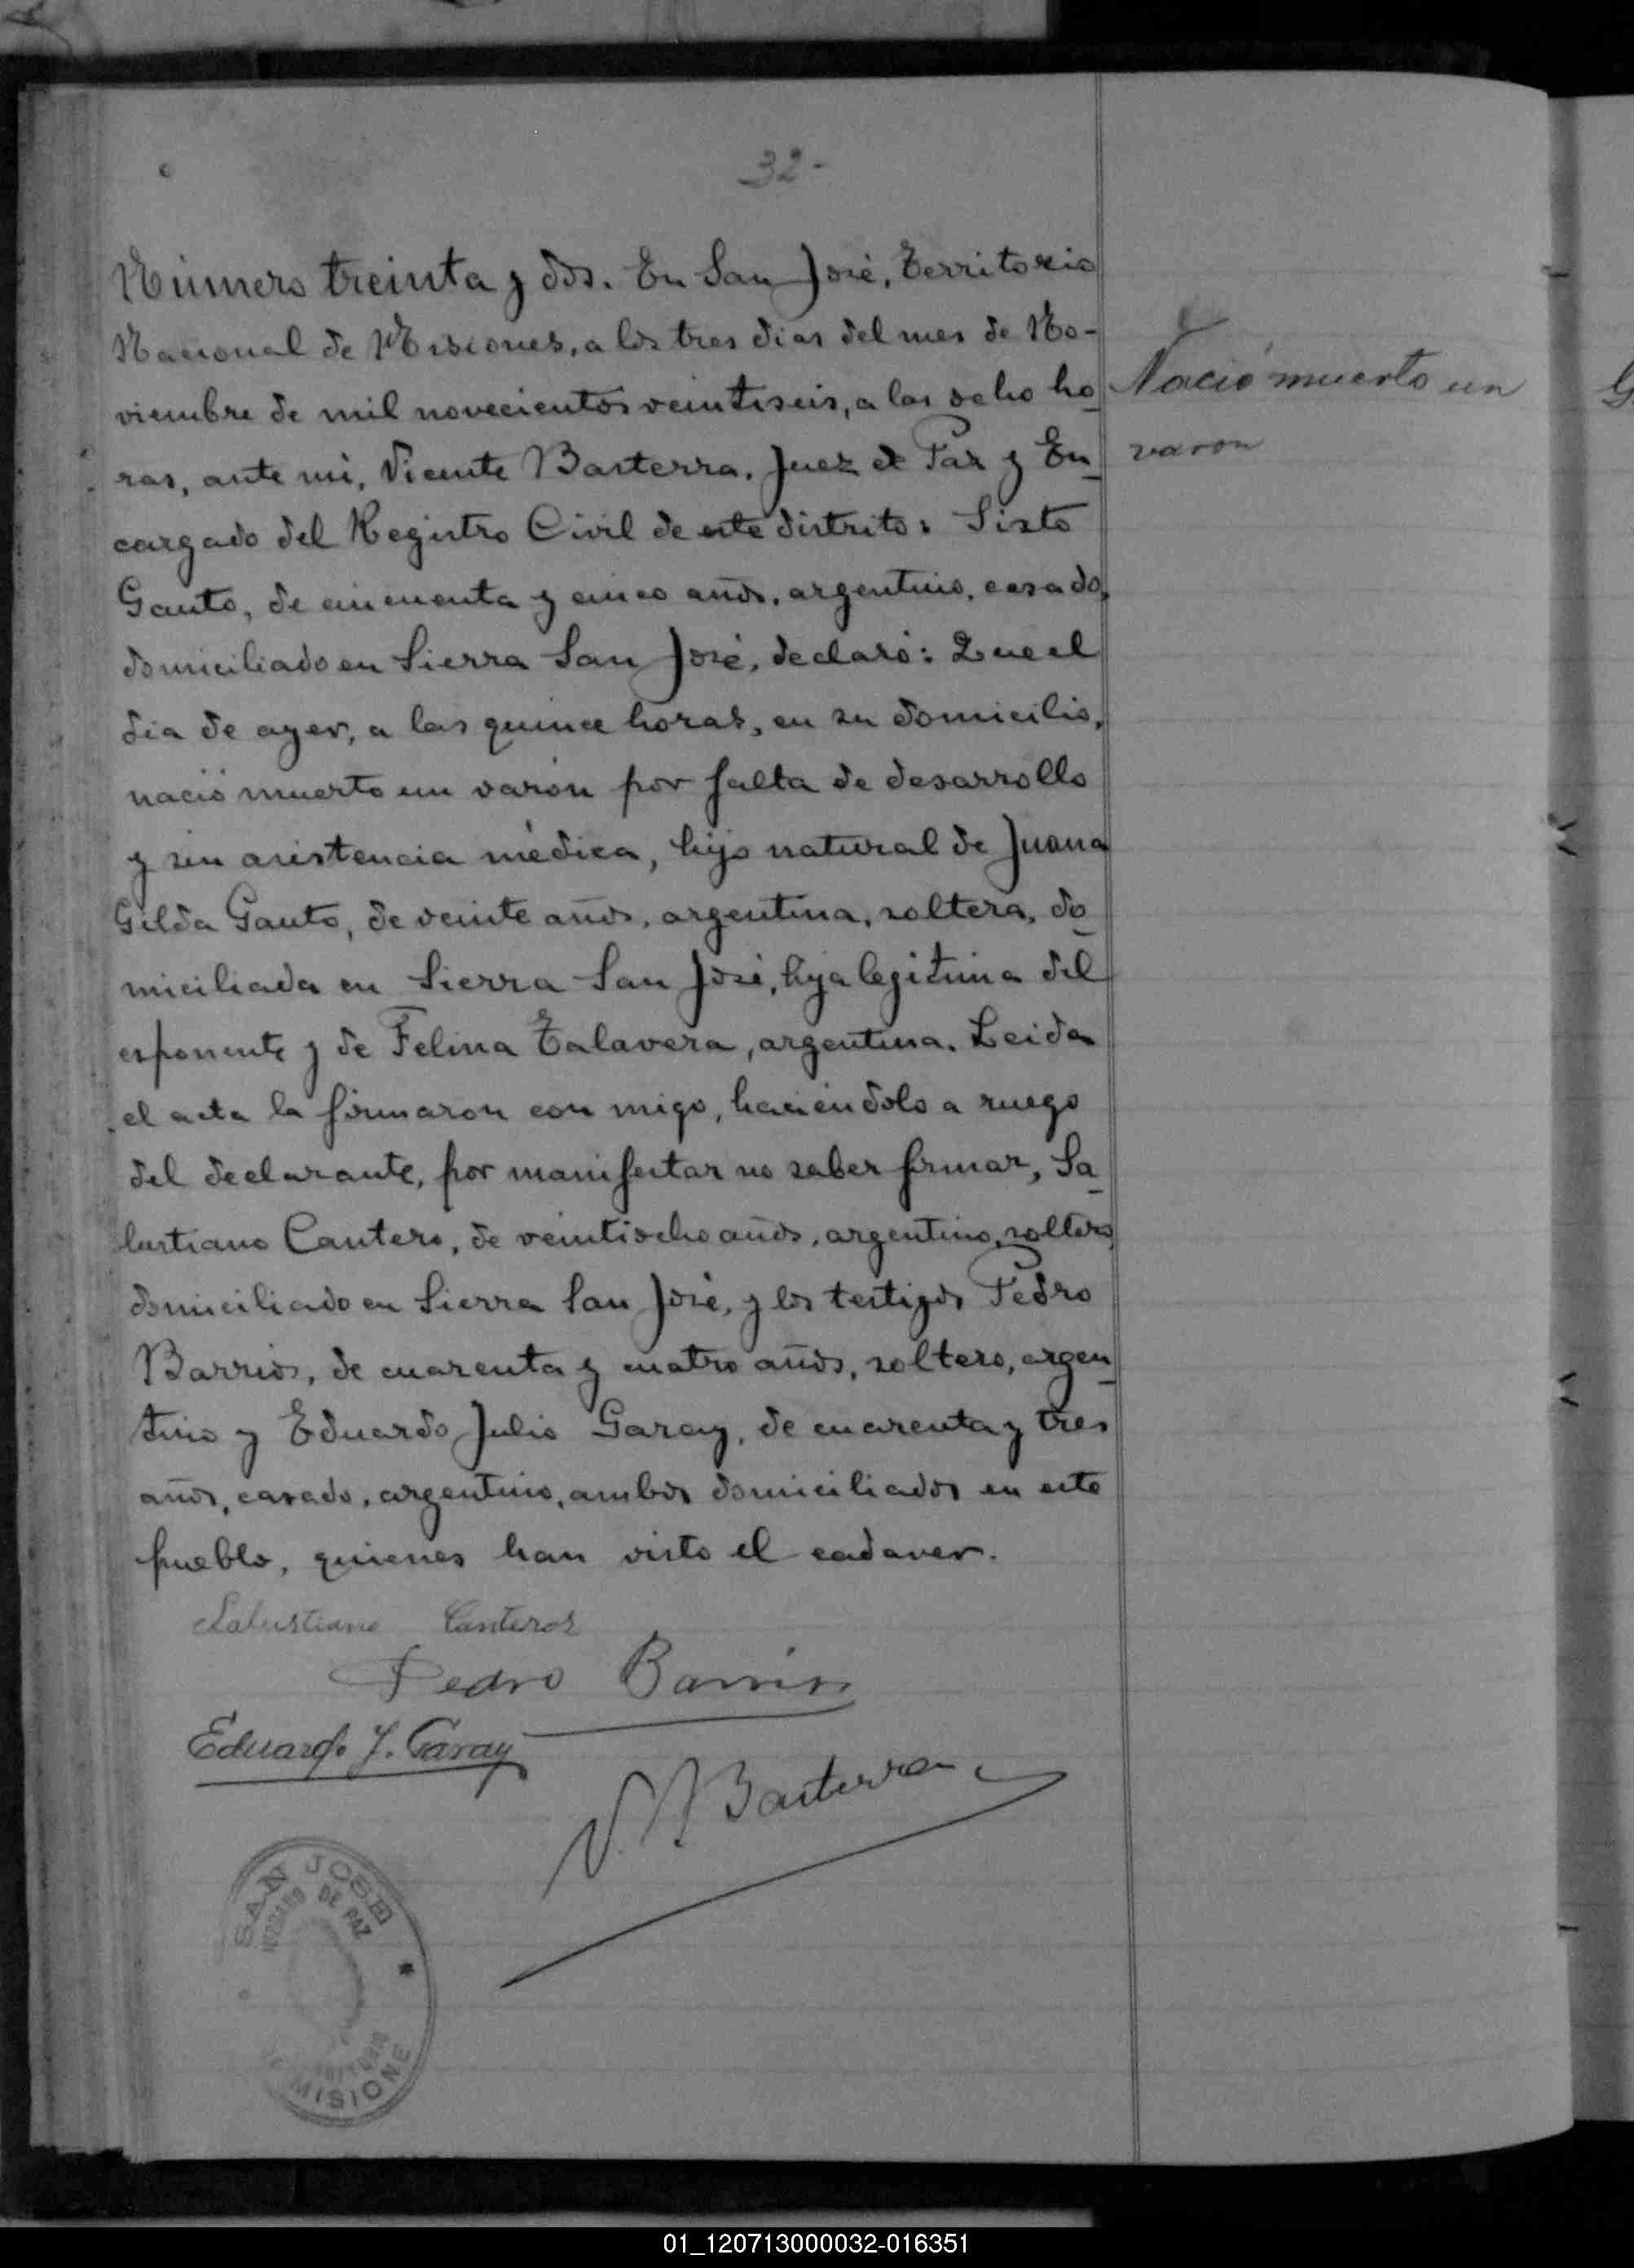 32-
Número treinta y dos. En San José, Territorio
Nacional de Misiones, a los tres dias del mes de No-
viembre de mil novecientos veintiseis, a las ocho ho-
ras, ante mi, Vicente Basterra, Juez de Paz y En-
cargado del Registro Civil de este distrito: Sixto
Gauto, de cincuenta y cinco años, argentino, casado,
domiciliado en Sierra San José, declaró: Que el
dia de ayer, a las quince horas, en su domicilio,
nació muerto un varón por falta de desarrollo
y sin asistencia médica, hijo natural de Juana
Gilda Gauto, de veinte años, argentina, soltera, do-
miciliada en Sierra San José, hija legitima del
esponente y de Felina Talavera, argentina. Leida
el acta la firmaron con migo, haciéndolo a ruego
del declarante, por manifestar no saber firmar, Sa-
lustiano Cantero, de veintiocho años, argentino, soltero,
domiciliado en Sierra San José, y los testigos Pedro
Barrios, de cuarenta y cuatro años, soltero, argen-
tino y Eduardo Julio Garay, de cuarenta y tres
años, casado, argentino, ambos domiciliados en este
pueblo, quienes han visto el cadaver.
Salustiano Canteros
Pedro Barrios
Eduardo J. Garay
V. Basterra
Nació muerto un
varon
SAN JOSE
JUZGADO DE PAZ
MISIONE
G
01_120713000032-016351